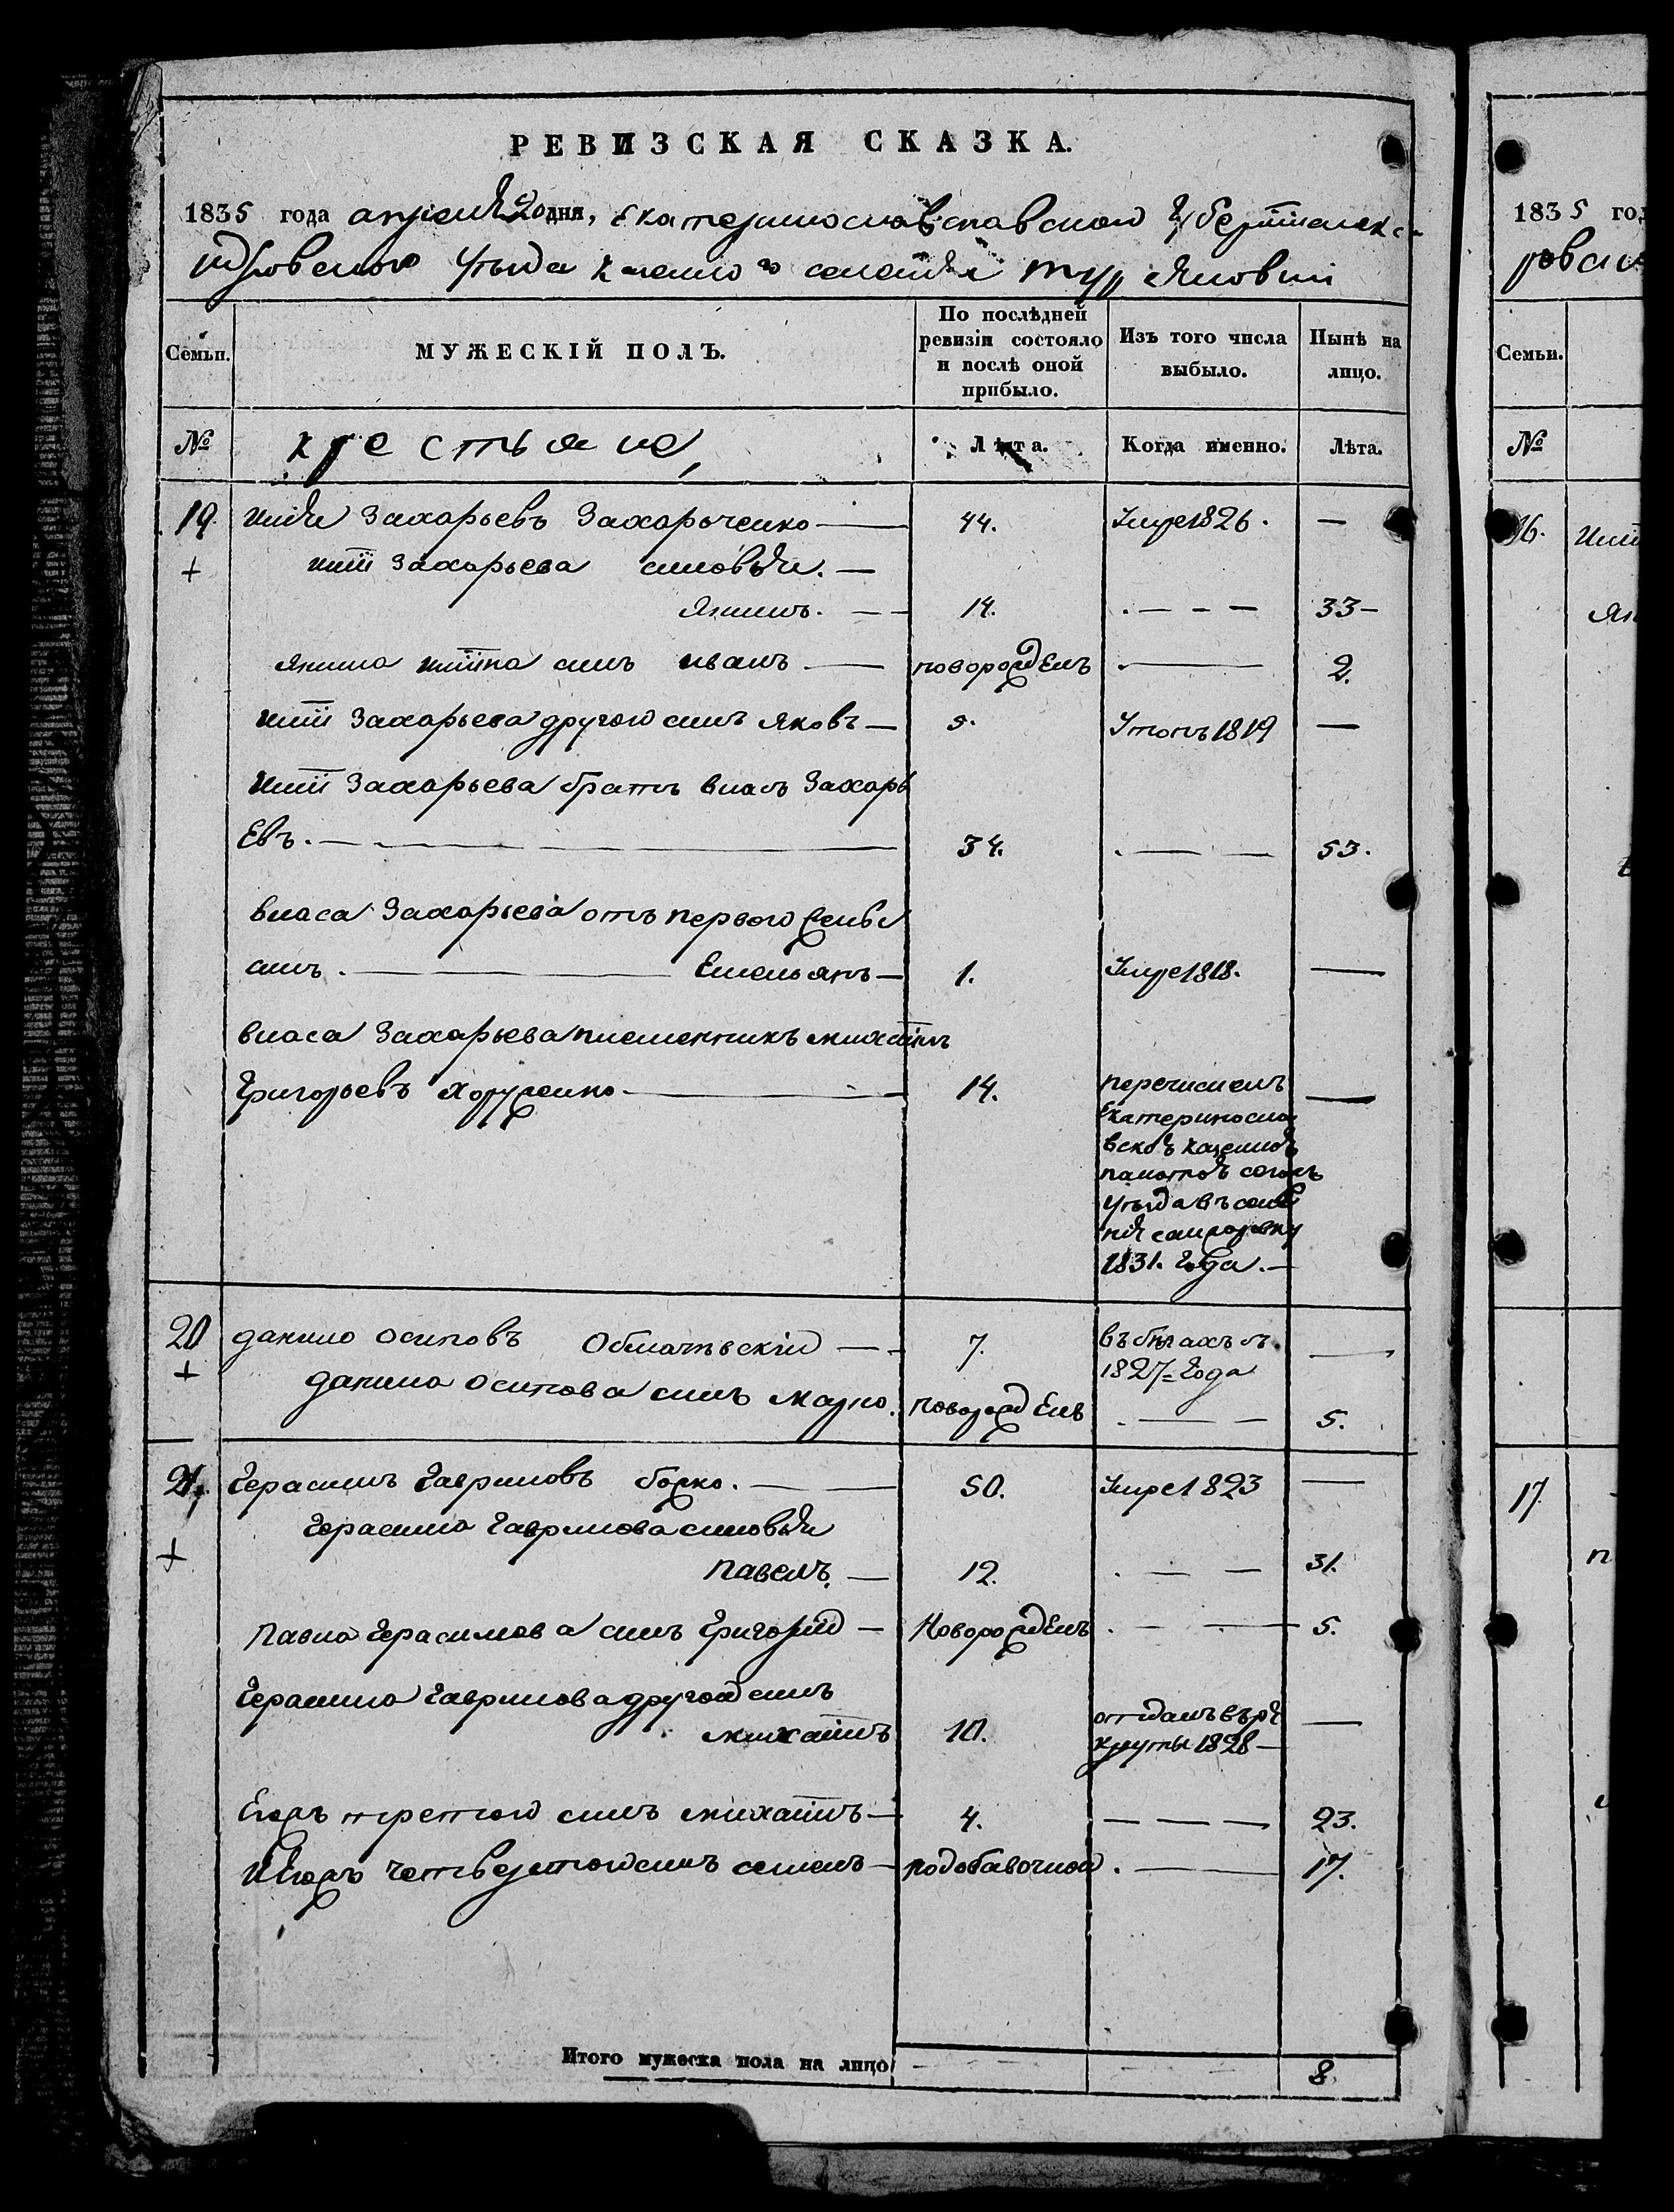 РЕВИЗСКАЯ СКАЗКА.
1835 года апреля 20 дня, Екатеринославской Губерніи Алекса-
ндровского Уезда казенного селенія
Семьи.
МУЖЕСКІЙ ПОЛЪ.
По послѣдней ревизіи состояло и послѣ оной прибыло.
Изъ того числа выбыло.
Нынѣ на лицо.
№ крестьяне, Лѣта. Когда именно. Лѣта.
19. Захарьевъ Захарченко — 44. Умре 1826. —
+ Захарьева сыновья. —
Якимъ. — — 14. . — — — 33 —
Якима сынъ иванъ. — новорожденъ . — 2.
Захарьева другой сынъ Яковъ — 5. Утопъ 1819 —
Захарьева братъ власъ Захарь
Евъ. — 34. . — — 53.
власа Захарьева отъ первой жены
сынъ. — Емельянъ — 1. Умре 1818. —
власа Захарьева племенникъ михаіилъ
Григорьевъ — 14. перечисленъ —
Екатериносла
вской казенной
палатой
уезда въ селе
нія
1831. Года. —
20 данило осиповъ — — 7. въ бѣгахъ съ —
1827 = Года
+ данила осипова сынъ марко. новорожденъ . — — 5.
21. Герасимъ Гавриловъ божко. — — 50. Умре 1823 —
Герасима Гаврилова сыновья
+ Павелъ. — 12. . — — 31.
Павла Герасимова сынъ Григорій — Новорожденъ . — — 5.
Герасима Гаврилова другой сынъ
михаіилъ 10. отданъ въ ре —
круты 1828 —
Егожъ третой сынъ михаіилъ — 4. — — — 23.
Игожъ четвертой сынъ семенъ — подобавочной . — — 17.
Итого мужеска пола на лицо — — — 8.
1835 год
ровско
Семьи.
№
16.
17.